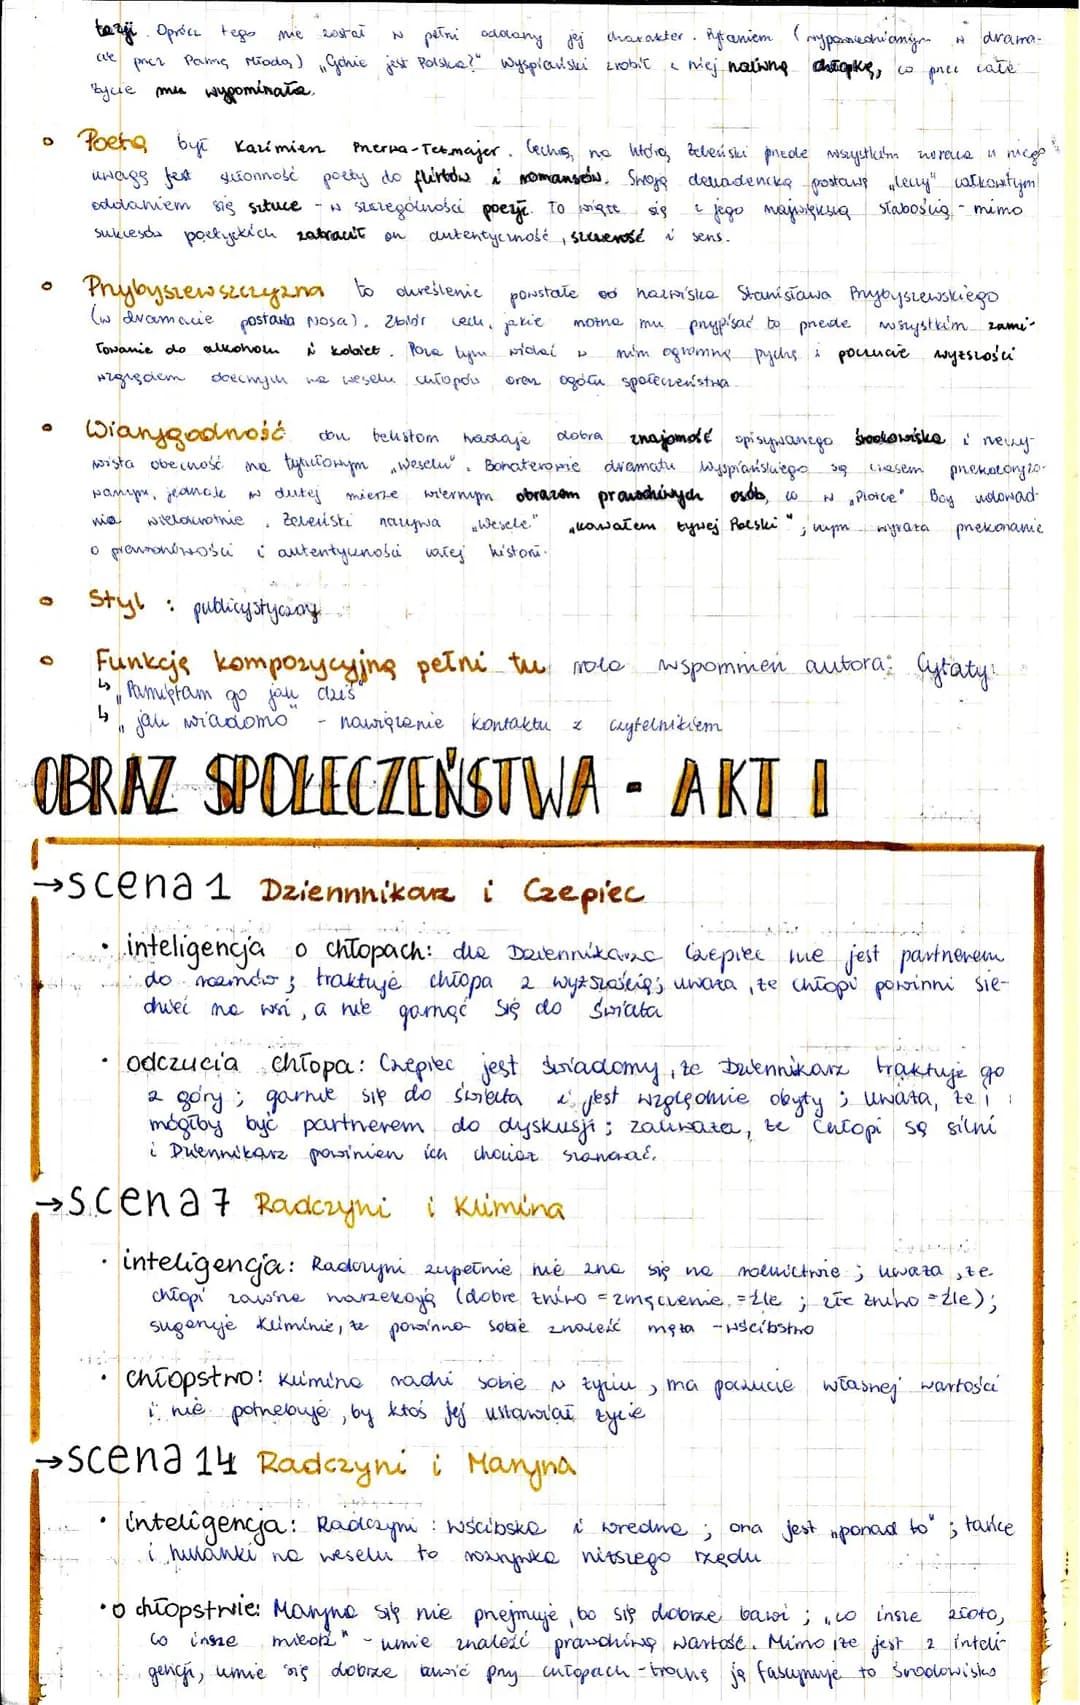 tezji. Oprócz tego nie został w pełni oddany jej charakter. Pytaniem (wypowiedzianym w drama-
cie przez Pannę Młodą) „Gdzie jest Polska?" Wyspiański zrobił z niej naiwną chłopkę, co przez całe
życie mu wypominała.
Poetą był Kazimierz Przerwa-Tetmajer. Cechą, na którą Żeleński przede wszystkim zwraca u niego
uwagę jest skłonność poety do flirtów i romansów. Swoją dekadencką postawę „leczy" całkowitym
oddaniem się sztuce - w szczególności poezji. To wiąże się z jego największą słabością - mimo
sukcesów poetyckich zatracił on autentyczność, szczerość i sens.
Przybyszewszczyzna to określenie powstałe od nazwiska Stanisława Przybyszewskiego
(w dramacie postawa Nosa). Zbiór cech, jakie można mu przypisać to przede wszystkim zami-
łowanie do alkoholu i kobiet. Poza tym widać w nim ogromną pychę i poczucie wyższości
względem obecnych na weselu chłopów oraz ogółu społeczeństwa.
Wiarygodność obu tekstom nadaje dobra znajomość opisywanego środowiska i rzeczy-
wista obecność na tytułowym „Weselu". Bohaterowie dramatu Wyspiańskiego są czasem przekoloryzo-
wanym, jednak w dużej mierze wiernym obrazem prawdziwych osób, co w „Plotce" Boy udowad-
nia wielokrotnie. Żeleński nazywa „Wesele" „kawałem żywej Polski", czym wyraża przekonanie
o prawdziwości i autentyczności całej historii.
Styl : publicystyczny
Funkcję kompozycyjną pełni tu rola wspomnień autora: Cytaty:
↳ „Pamiętam go jak dziś"
↳ „jak wiadomo" - nawiązanie kontaktu z czytelnikiem
OBRAZ SPOŁECZEŃSTWA - AKT I
→scena 1 Dziennnikarz i Czepiec
• inteligencja o chłopach: dla Dziennikarza Czepiec nie jest partnerem
do rozmów; traktuje chłopa z wyższością; uważa, że chłopi powinni sie-
dzieć na wsi, a nie garnąć się do świata
• odczucia chłopa: Czepiec jest świadomy, że Dziennikarz traktuje go
z góry; garnie się do świata i jest względnie obyty; uważa, że
mógłby być partnerem do dyskusji; zauważa, że chłopi są silni
i Dziennikarz powinien ich chociaż szanować.
→scena 7 Radczyni i Klimina
• inteligencja: Radczyni zupełnie nie zna się na rolnictwie; uważa, że
chłopi zawsze narzekają (dobre żniwo = zmęczenie = źle ; złe żniwo = źle);
sugeruje Kliminie, że powinna sobie znaleźć męża - wścibstwo
• chłopstwo: Klimina radzi sobie w życiu, ma poczucie własnej wartości
i nie potrzebuje, by ktoś jej ustawiał życie
→scena 14 Radczyni i Maryna
• inteligencja: Radczyni : wścibska i wredna; ona jest „ponad to"; tańce
i hulanki na weselu to rozrywka niższego rzędu
• o chłopstwie: Maryna się nie przejmuje, bo się dobrze bawi; „co insze złoto,
co insze miedź" - umie znaleźć prawdziwą wartość. Mimo iże jest z inteli-
gencji, umie się dobrze bawić przy chłopach - trochę ją fascynuje to środowisko